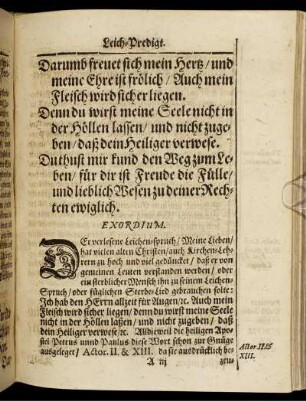 Leich-Predigt.
Darumb freuet sich mein Hertz/ und
meine Ehre ist frölich/ Auch mein
Fleisch wird sicher liegen.
Denn du wirst meine Seele nicht in
der Höllen lassen/ und nicht zuge-
ben/ daß dein Heiliger verwese.
Du thust mir kund den Weg zum Le-
ben/ für dir ist Freude die Fülle/
und lieblich Wesen zu deiner Rech-
ten ewiglich.
EXORDIUM.
DEr verlesene Leichen-spruch/ Meine Lieben/
hat vielen alten Christen/ auch Kirchen-Leh-
rern zu hoch und viel gedüncket/ daß er von
gemeinen Leuten verstanden werden/ oder
ein sterblicher Mensch ihn zu seinem Leichen-
Spruch/ oder füglichen Sterbe-Lied gebrauchen solte:
Ich hab den HErrn allzeit für Augen/ ꝛc. Auch mein
Fleisch wird sicher liegen/ denn du wirst meine Seele
nicht in der Höllen laßen/ und nicht zugeben/ daß
dein Heiliger verwese/ ꝛc. Aldieweil die heiligen Apos-
tel Petrus unnd Paulus diese Wort schon zur Gnüge
ausgeleget/ Actor. II. & XIII. da sie ausdrücklich be-
Actor. II. &
XIII.
A iij